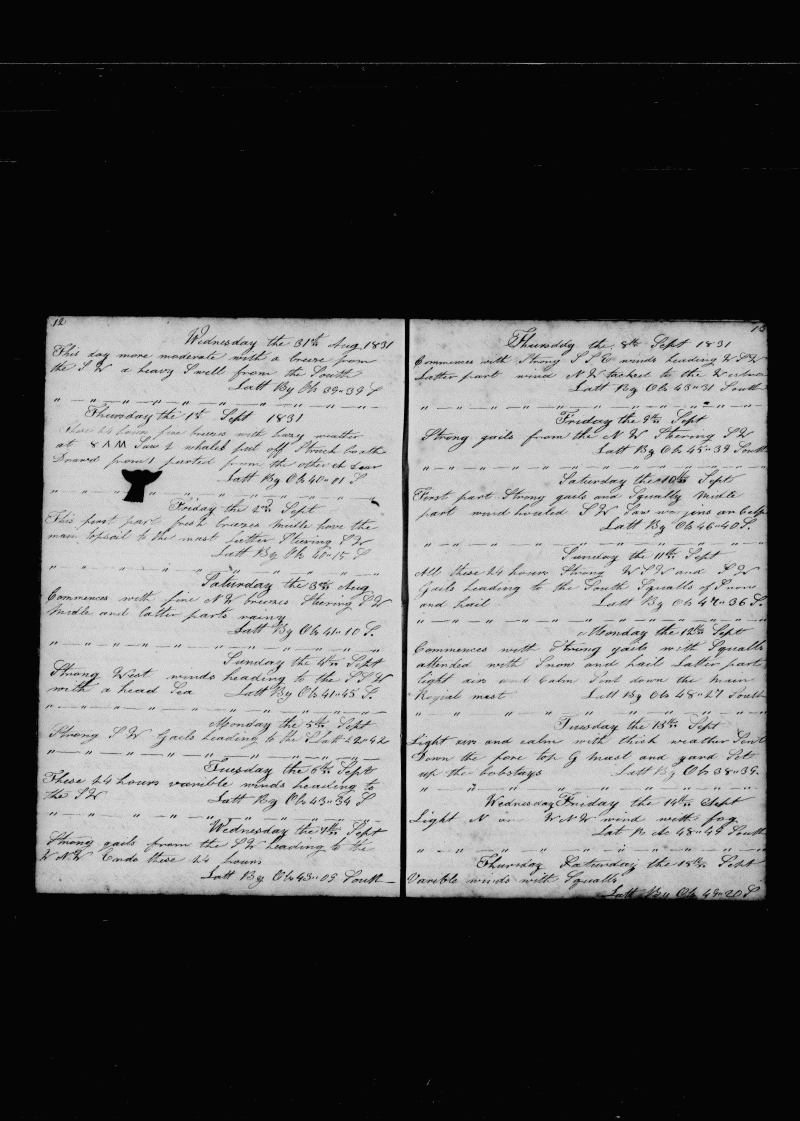 12
Wednesday the 31st Aug 1831
This day more moderate with a breeze from
the S W a heavy Swell from the South
Latt By Ob 39..39 S
Thursday the 1st Sept 1831
These 24 hours fine breezes with hazy weather
at 8 AM Saw 2 whales put off Struck both
Drawd from 1 parted from the other
Latt By Ob 40..11 S
Friday the 2nd Sept
This first part fresh breezes Midle hove the
main topsail to the mast latter Steering S W
Latt By Ob 40..15 S
Saturday the 3rd Aug
Commences with fine N W breezes Stering S W
Midle and latter parts rainy
Latt By Ob 41..10 S.
Sunday the 4th Sept
Strong West winds heading to the S S W
with a head Sea Latt By Ob 41..45 S.
Monday the 5th Sept
Strong S W Gails heading to the S Latt 42
Tuesday the 6th Sept
These 24 hours varible winds heading to
the S W Latt By Ob 43..34 S
Wednesday the 7th Sept
Strong gails from the S W heading to the
W N W Ends these 24 hours
Latt By Ob 43..09 South
13
Thursday the 8th Sept 1831
Commences with Strong S S E winds heading W S W
Latter part wind N W tacked to the
Latt By Ob 43..31 South
Friday the 9th Sept
Strong gails from the N W Stering S W
Latt By Ob 45..39 South
Saturday the 10th Sept
First part Strong gails and Squally Midle
part wind hauled S W Saw
Latt By Ob 46..40 S
Sunday the 11th Sept
All these 24 hours Strong W S W and S W
Gails heading to the South Squalls of Snow
and hail Latt By Ob 47..36 S.
Monday the 12th Sept
Commences with Strong gails with Squalls
attended with Snow and hail Latter part
light air and Calm Sent down the Main
Royial mast Latt By Ob 48..27 South
Tuesday the 13th Sept
Light airs and calm with thick weather Sent
Down the fore top G mast and yard Set
up the bobstays Latt By Ob 38..39.
Wednesday Friday the 14th Sept
Light N W N W wind with fog
Lat B Ob 48..49 South
Thursday Saturday the 15th Sept
Varible winds with Squalls
Latt By Ob 49..20 S